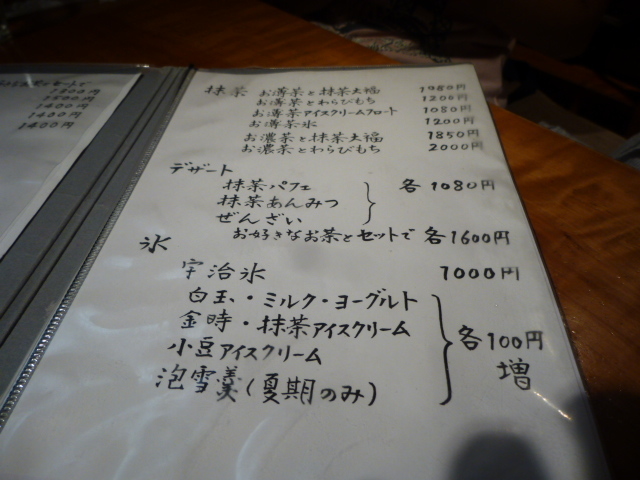 セットで
1300円
1400円
1400円
抹茶 お薄茶と抹茶大福 1080円
お薄茶とわらびもち 1200円
お薄茶アイスクリームフロート 1080円
お薄茶氷 1200円
お濃茶と抹茶大福 1850円
お濃茶とわらびもち 2000円
デザート
抹茶パフェ
抹茶あんみつ 各1080円
ぜんざい
お好きなお茶とセットで 各1600円
氷
宇治氷 1000円
白玉・ミルク・ヨーグルト
金時・抹茶アイスクリーム 各100円
小豆アイスクリーム 増
泡雪羹(夏期のみ)